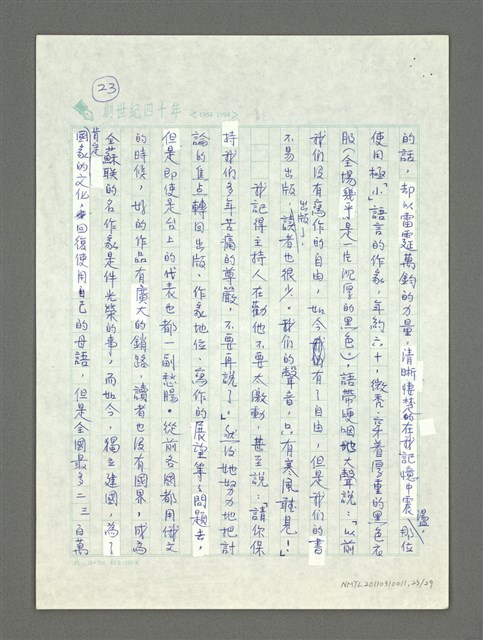 23
創世紀四十年 <1954-1994>
的話，却以雷霆萬鈞的力量，清晰悽楚的在我記憶中震盪。那位
使用「極小」語言的作家，年約六十，微禿，穿着厚重的黑色衣
服（全場幾乎是一片沉厚的黑色。），語帶哽咽地大聲說：「以前
我們沒有寫作的自由，如今我們有了自由，但是我們的書
不易出版，出版了，讀者也很少。我們的聲音，只有寒風聽見！」
我記得主持人在勸他不要太激動，甚至說：「請你保
持我們多年苦痛的尊嚴，不要再說了。」然後她努力地把討
論的焦点轉回出版、作家地位、寫作的展望等等問題去，
但是即使是台上的代表也都一副愁腸。從前各國都用俄文
的時候，好的作品有廣大的銷路，讀者也沒有國界，成為
全蘇联的名作家是件光榮的事，而如今，獨立建國，為了
肯定國家的文化，回復使用自己的母語，但是全國最多二三百萬
NMTL20110310011, 23/29